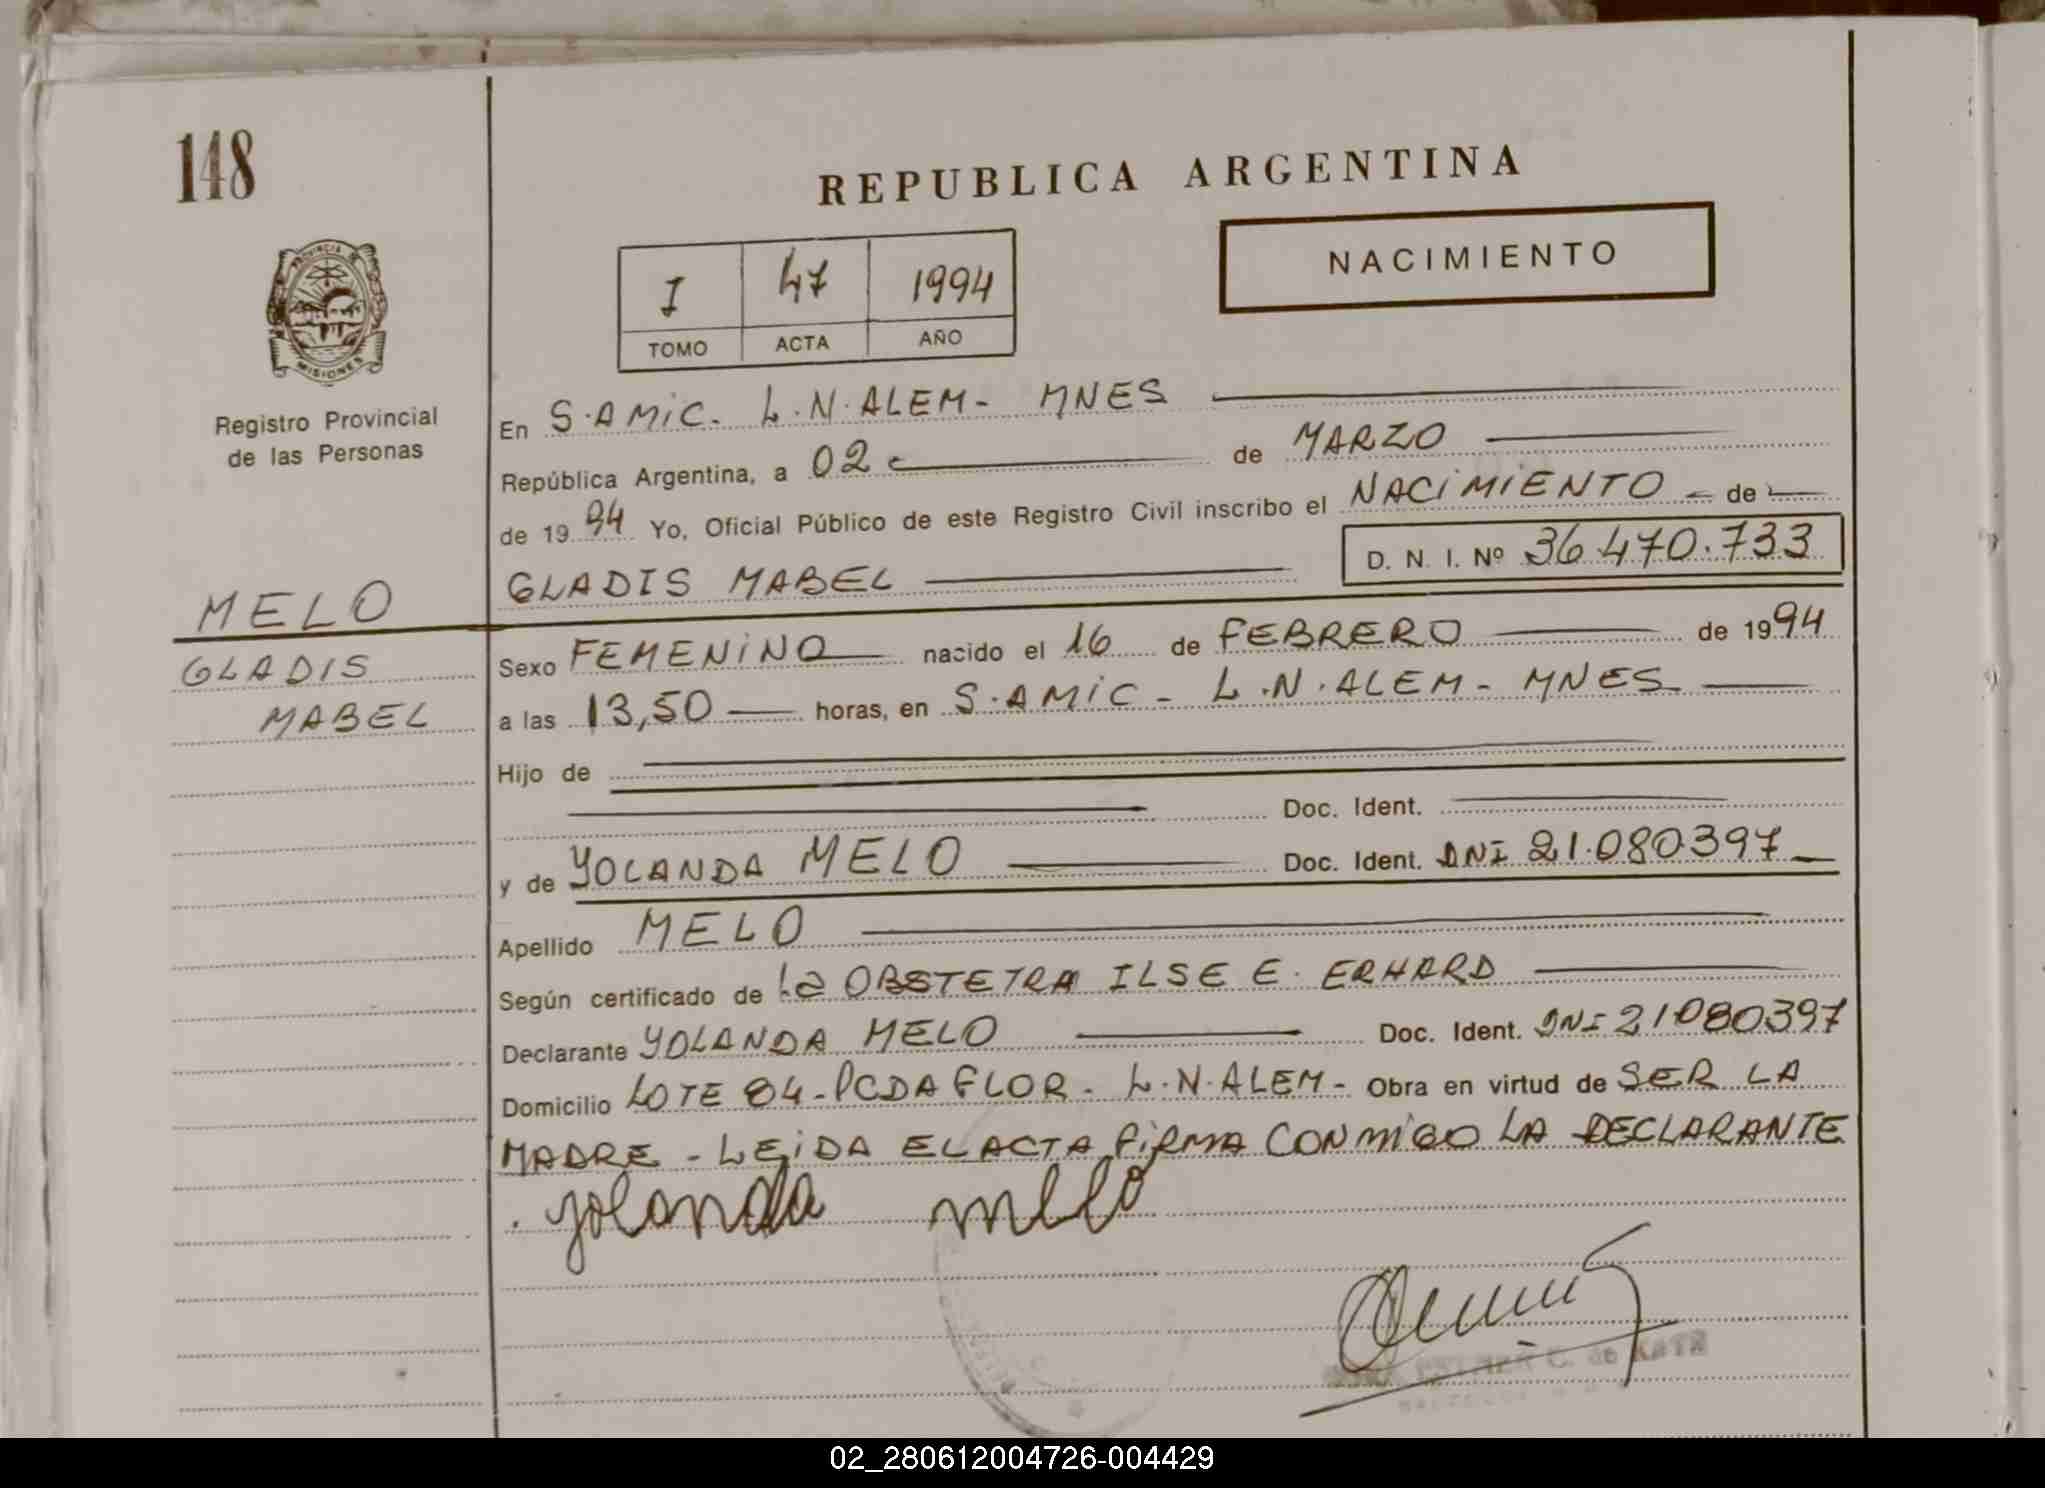 148
REPUBLICA ARGENTINA
NACIMIENTO
I 47 1994
TOMO ACTA AÑO
PROVINCIA DE
MISIONES
Registro Provincial
de las Personas
En S.AMIC. L.N.ALEM- MNES
República Argentina, a 02 de MARZO
de 1994 Yo, Oficial Público de este Registro Civil inscribo el NACIMIENTO de
GLADIS MABEL D. N. I. Nº 36.470.733
MELO
GLADIS
MABEL
Sexo FEMENINO nacido el 16 de FEBRERO de 1994
a las 13,50 horas, en S.AMIC - L.N.ALEM- MNES
Hijo de
Doc. Ident.
y de YOLANDA MELO Doc. Ident. DNI 21.080.397
Apellido MELO
Según certificado de La OBSTETRA ILSE E. ERHARD
Declarante YOLANDA MELO Doc. Ident. DNI 21080397
Domicilio LOTE 84-PCDA FLOR- L.N.ALEM- Obra en virtud de SER LA
MADRE - LEIDA EL ACTA FIRMA CONMIGO LA DECLARANTE
yolanda melo
C. de
02_280612004726-004429